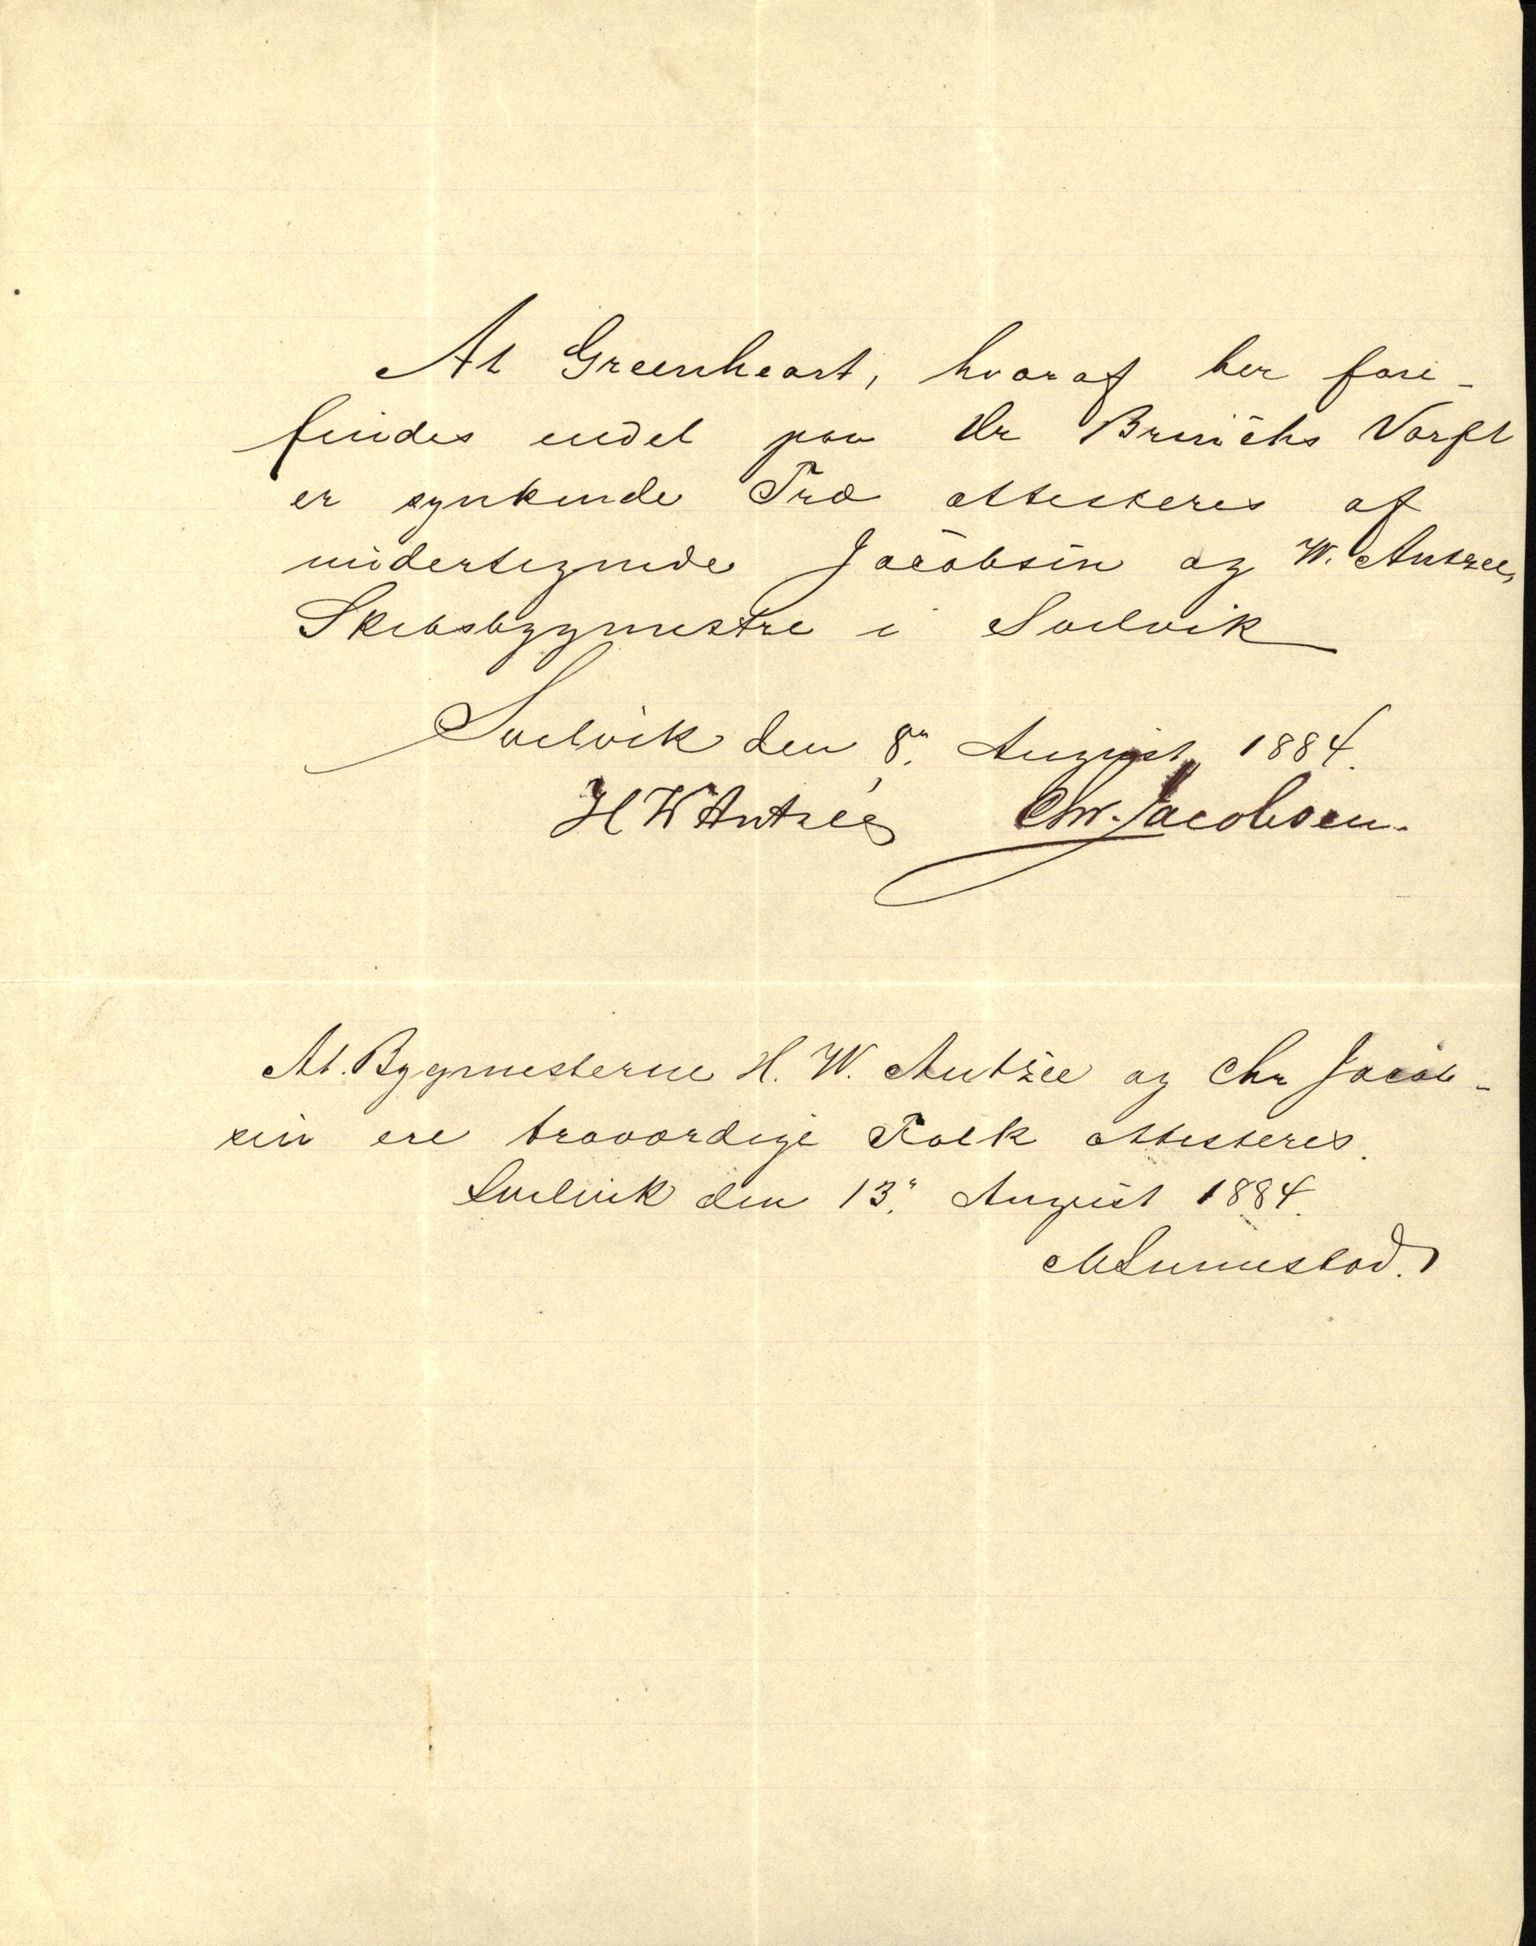 At Greenheart, hvoraf her fore-
findes endel paa Hr Brunchs Varft
er synkende Træ attesteres af
undertegnede Jacobsen og W. Antzée,
Skibsbygmestre i Svelvik
Svelvik den 8de August 1884.
H W Antzée Chr. Jacobsen.
At Bygmesterne H. W. Antzée og Chr Jacob-
sen ere troværdige Folk attesteres.
Svelvik den 13de August 1884.